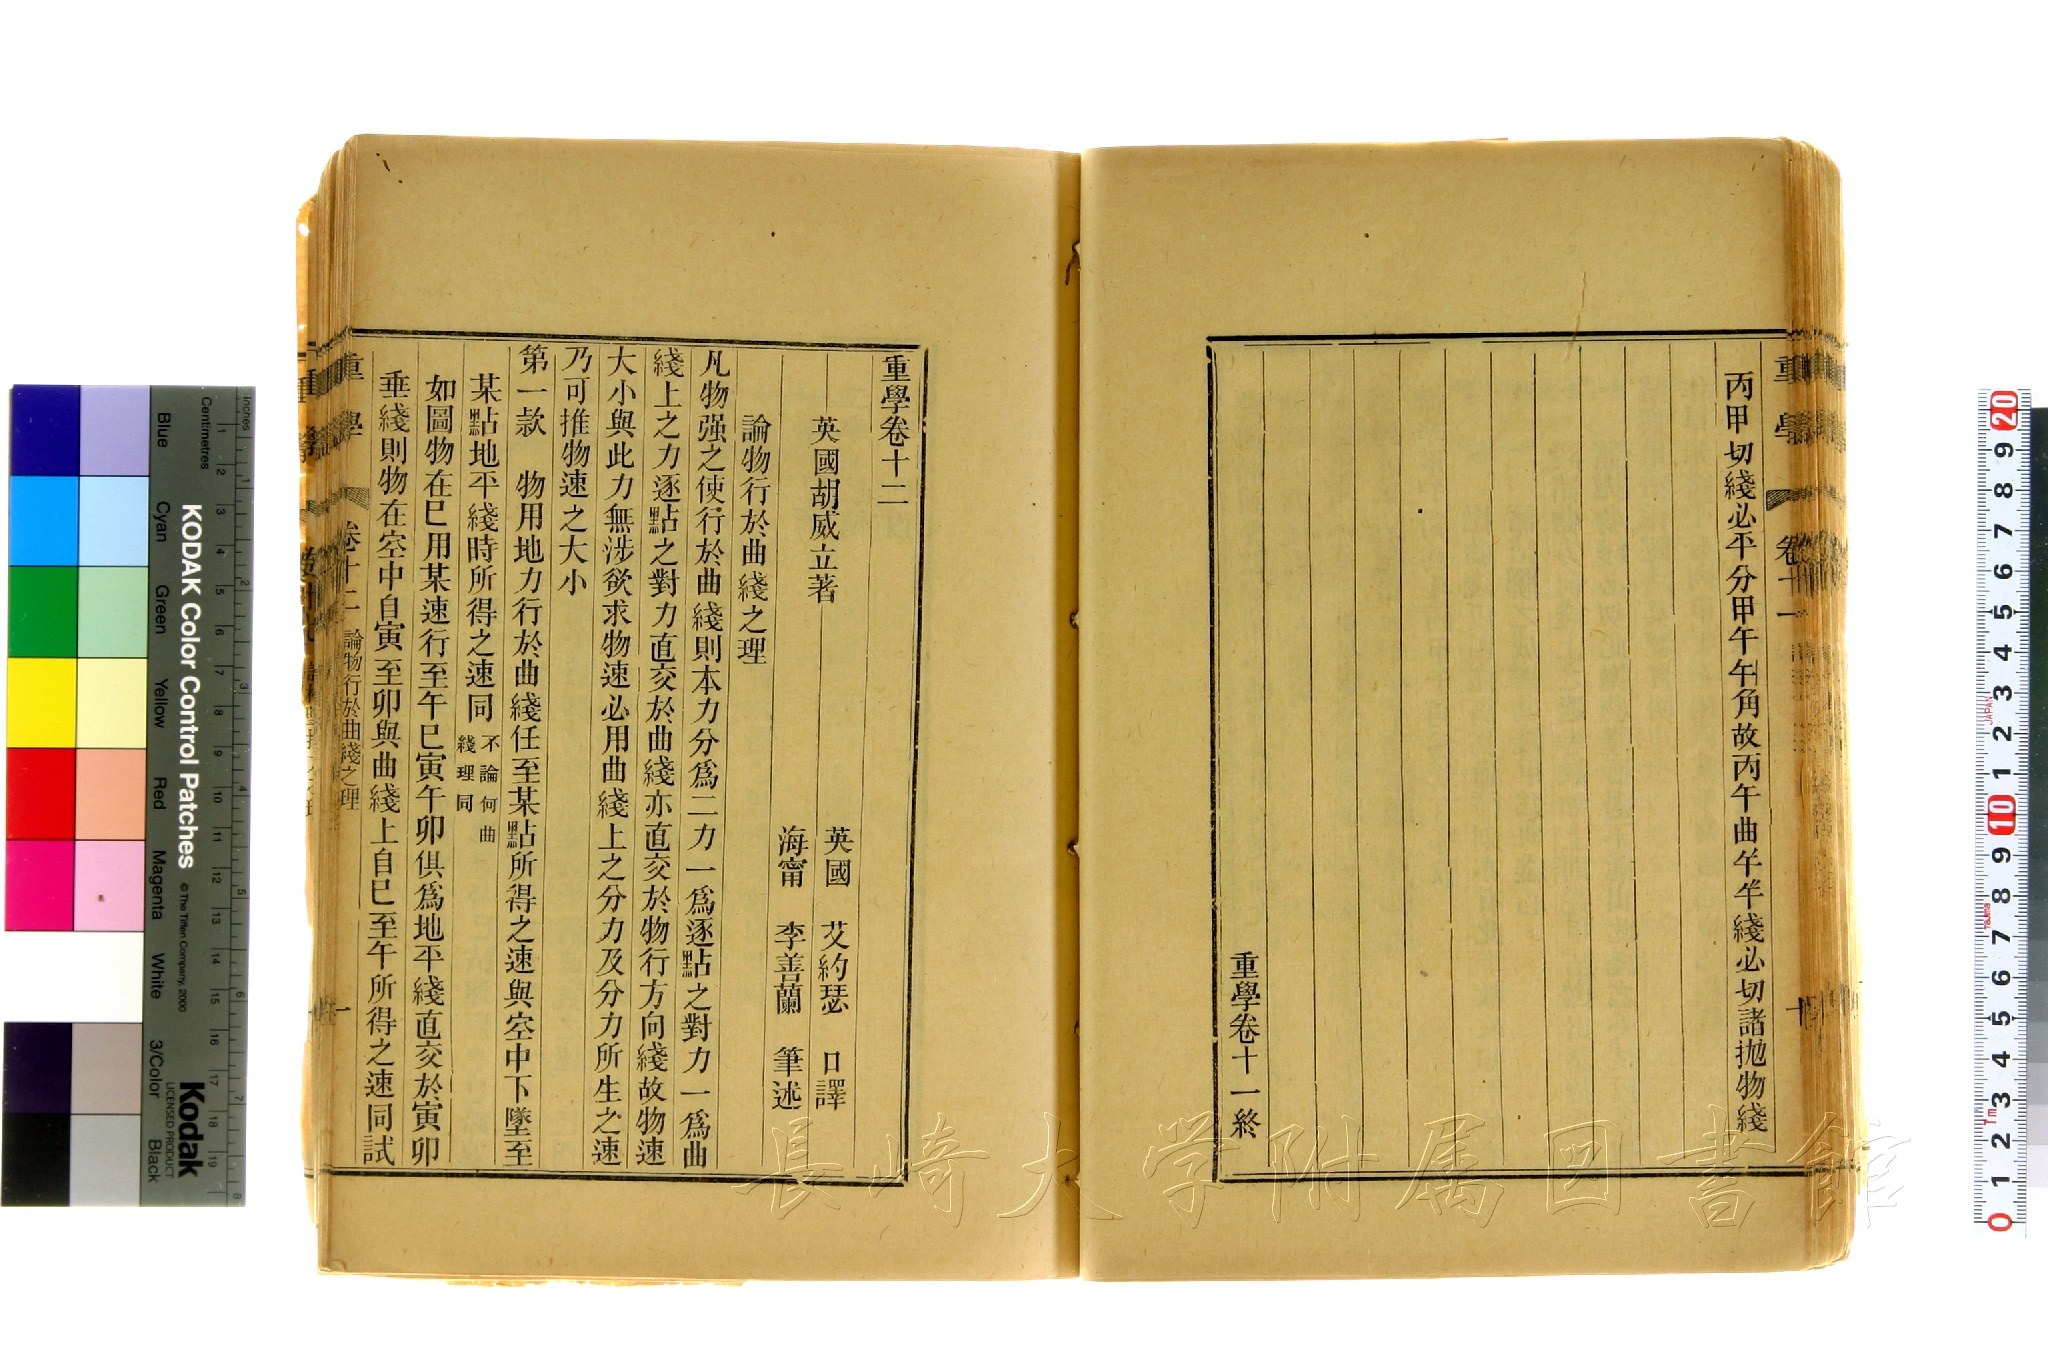 丙甲切綫必平分甲午午角故丙午曲午午綫必切諸拋物綫
重學卷十一終
重學
卷十一
重學卷十二
英國胡威立著
英國 艾約瑟 口譯
海甯 李善蘭 筆述
論物行於曲綫之理
凡物强之使行於曲綫則本力分爲二力一爲逐點之對力一爲曲
綫上之力逐點之對力直交於曲綫亦直交於物行方向綫故物速
大小與此力無涉欲求物速必用曲綫上之分力及分力所生之速
乃可推物速之大小
第一款 物用地力行於曲綫任至某點所得之速與空中下墜至
某點地平綫時所得之速同 不論何曲
綫理同
如圖物在巳用某速行至午巳寅午卯俱爲地平綫直交於寅卯
垂綫則物在空中自寅至卯與曲綫上自巳至午所得之速同試
重學
卷十二 論物行於曲綫之理
一
長崎大学附属図書館
KODAK Color Control Patches
© The Tiffen Company, 2000
Kodak
LICENSED PRODUCT
Blue Cyan Green Yellow Red Magenta White 3/Color Black
Inches
Centimetres
1 2 3 4 5 6 7 8 9 10 11 12 13 14 15 16 17 18 19
1 2 3 4 5 6 7 8
20 9 8 7 6 5 4 3 2 1 10 9 8 7 6 5 4 3 2 1 0
JAPAN